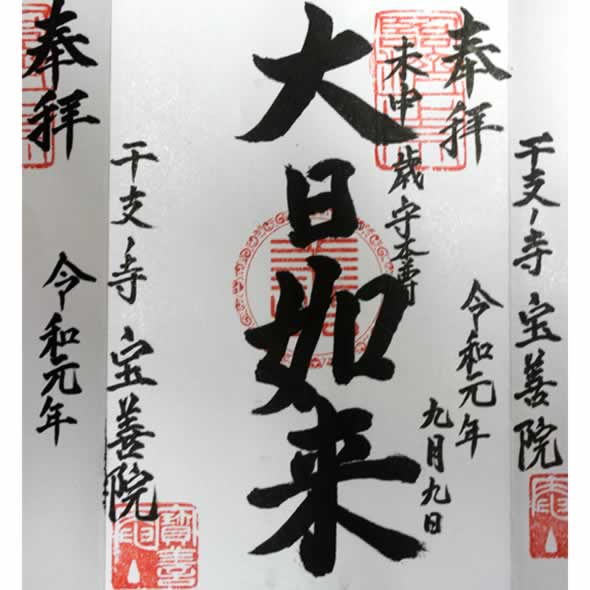 干支ノ寺 宝善院
奉拝
令和元年
九月九日
未申歳守本尊
大日如来
干支ノ寺 宝善院
奉拝
令和元年
寶善